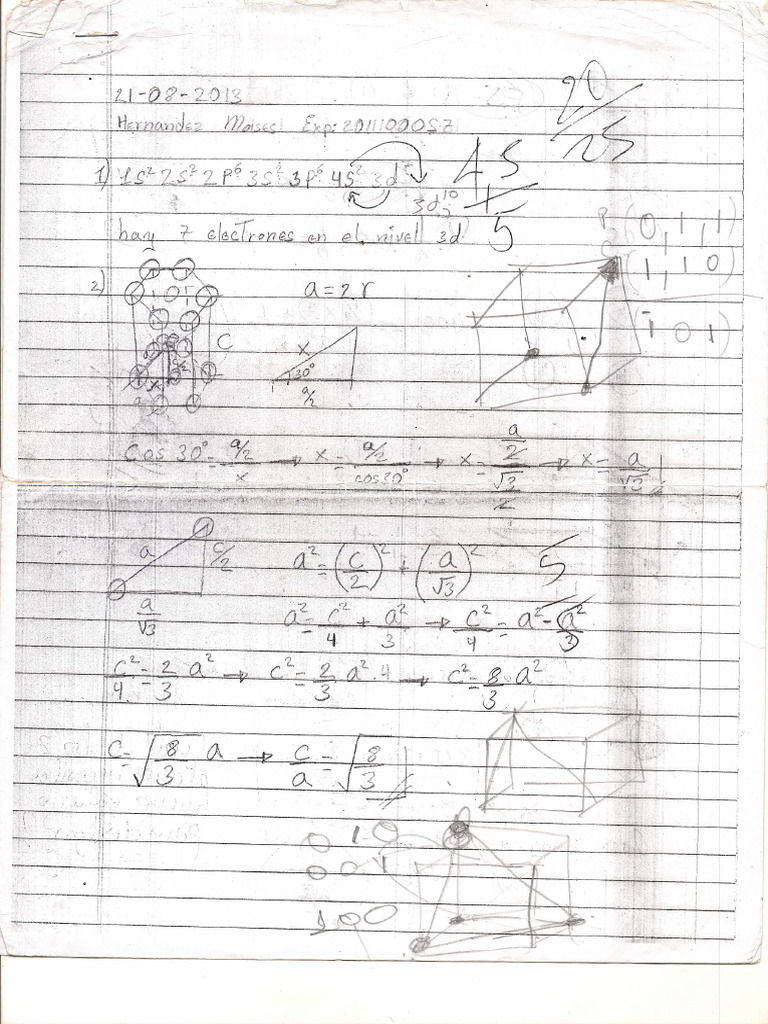 21-08-2013
20/25
Hernandez Moises Exp: 2011100057
1) 1S² 2S² 2P⁶ 3S² 3P⁶ 4S² 3d⁵
3d¹⁰
5
hay 7 electrones en el nivel 3d
P (0, 1, 1)
(1, 1 0)
(1̄ 0 1)
2)
a = 2r
C
x
30°
a/2
Cos 30° = a/2 / x → x = a/2 / cos30° → x = a/2 / √3/2 → x = a/√3
a
c/2
a/√3
a² = (c/2)² + (a/√3)²
5
a² = c²/4 + a²/3 → c²/4 = a² - a²/3
c²/4 = 2/3 a² → c² = 2/3 a² · 4 → c² = 8/3 a²
C = √8/3 a → c/a = √8/3
0 1 0
0 0 1
1 0 0